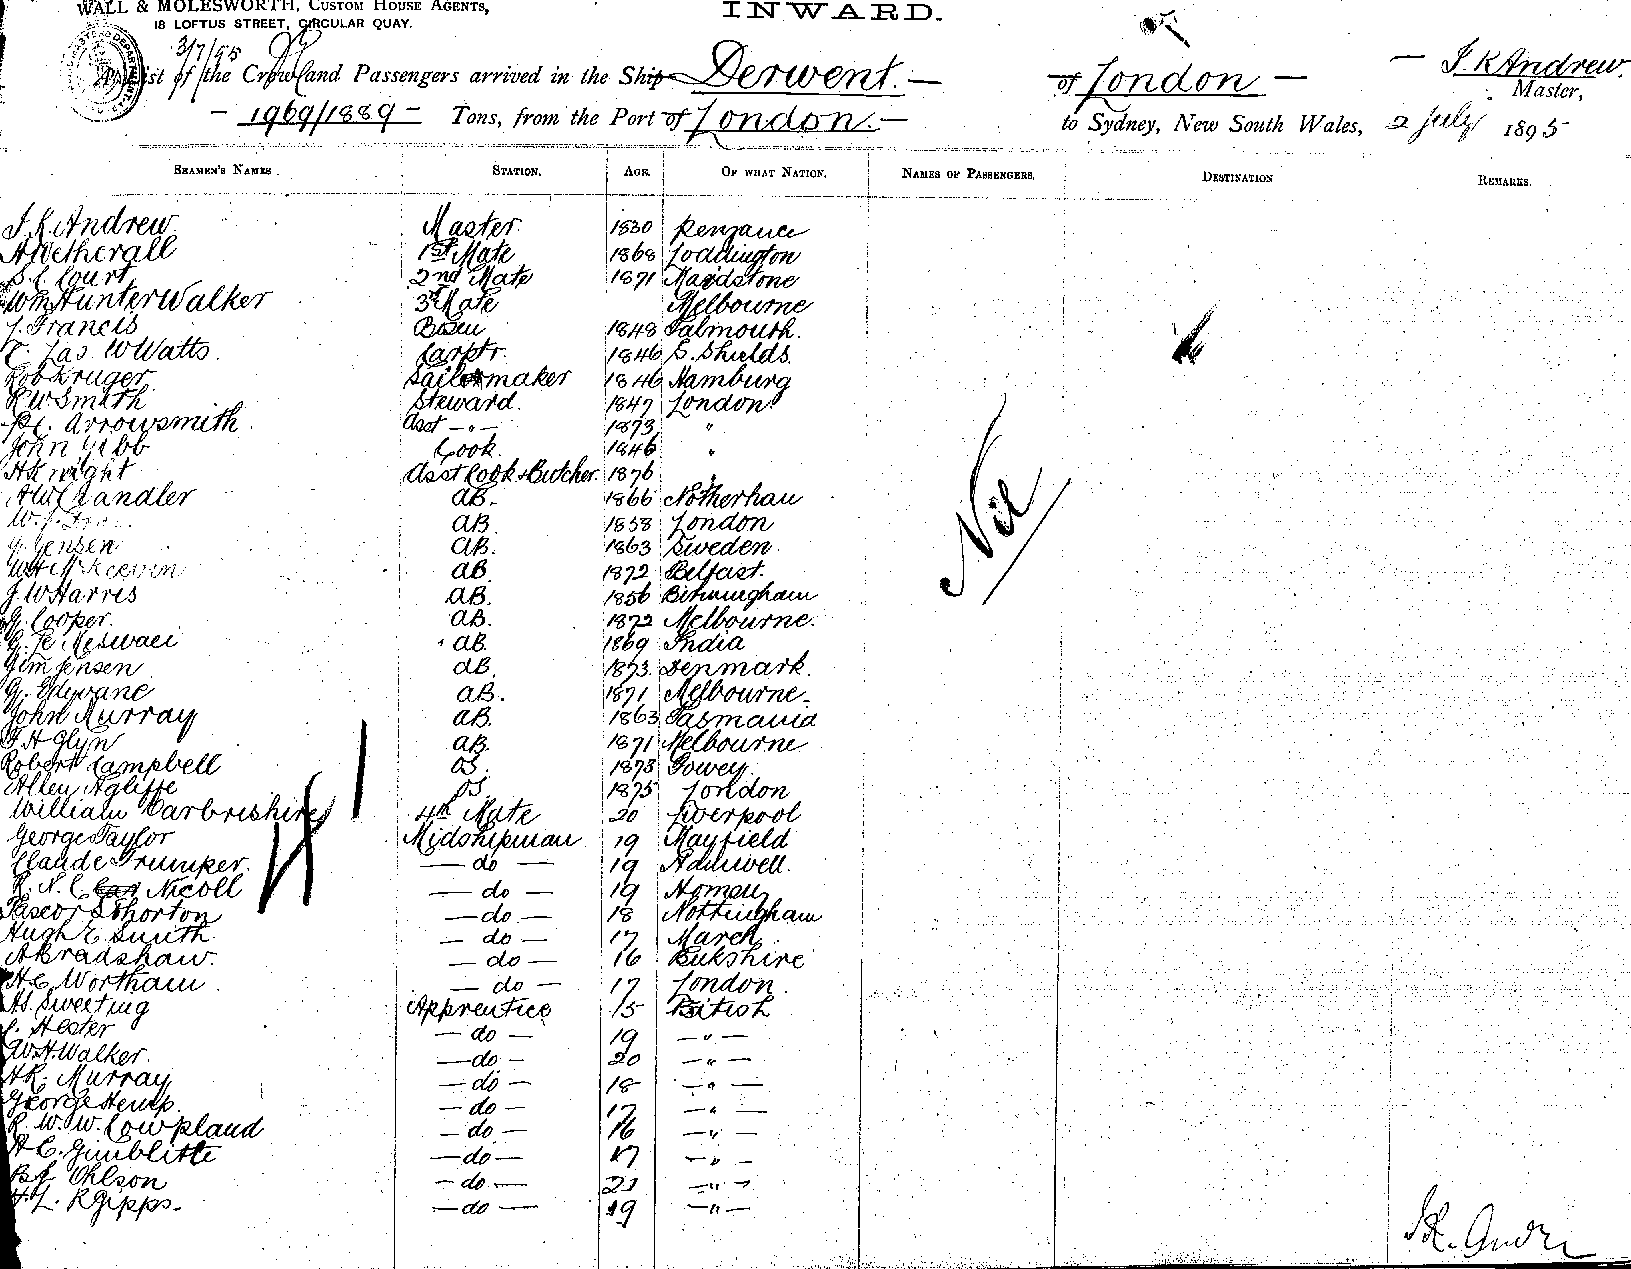 WALL & MOLESWORTH, CUSTOM HOUSE AGENTS,
18 LOFTUS STREET, CIRCULAR QUAY.
INWARD.
3/7/95
List of the Crew and Passengers arrived in the Ship Derwent. of London J. R Andrew. Master,
1969/1889 Tons, from the Port of London. to Sydney, New South Wales, 2 July 1895
SEAMEN'S NAMES. STATION. AGE. OF WHAT NATION. NAMES OF PASSENGERS. DESTINATION REMARKS.
J. R Andrew Master 1830 Penzance
A Wetherall 1st Mate 1868 Loddington
S. C. Court 2nd Mate 1871 Maidstone
Wm Hunter Walker 3rd Mate Melbourne
J. Francis Bosn 1848 Falmouth.
Jas. W Watts. Carptr. 1846 S. Shields.
Rob Kruger Sailmaker 1846 Hamburg
R W Smith Steward. 1847 London
Arrowsmith Asst — " — 1873 "
John Gibb Cook 1846 "
H Knight Asst Cook & Butcher. 1876 "
A W Chandler AB. 1866
W. J. AB. 1858 London
Jensen AB. 1863 Sweden
W H McKeevin AB 1872 Belfast.
J. W Harris AB. 1856 Birmingham
G. Cooper. AB. 1872 Melbourne.
AB. 1869 India
Jensen AB. 1873 Denmark.
G. Edyvane AB. 1871 Melbourne.
John Murray AB. 1863 Tasmania
F. H Glyn AB. 1871 Melbourne
Robert Campbell OS. 1873 Fowey.
Allen Agliffe OS. 1875 London
William Darbrishire 4th Mate 20 Liverpool
George Taylor Midshipman 19 Mayfield
Claude Trumper. — do — 19
R. N. C Nicoll — do — 19
Thorton — do — 18 Nottingham
Hugh E Smith — do — 17 March
A Bradshaw. — do — 16 Berkshire
H C Wortham — do — 17 London
Sweeting Apprentice 15 British
Hester — do — 19 — " —
W. H. Walker. — do — 20 — " —
H R. Murray — do — 18 — " —
George Hemp. — do — 17 — " —
R. W. W. Cowpland — do — 16 — " —
H C. Gimblitte — do — 17 — " —
Ohlson — do — 21 — " —
H. L. R Gipps. — do — 19 — " —
Nil